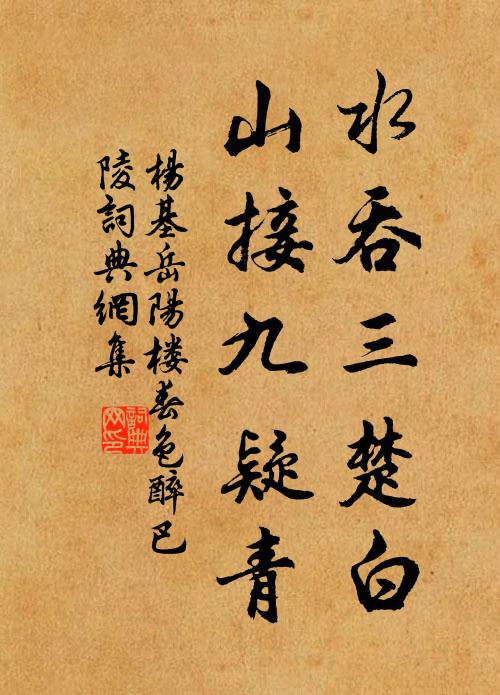 水吞三楚白
山接九疑青
楊基岳陽楼春色醉巴
陵詞典網集
詞典
网印